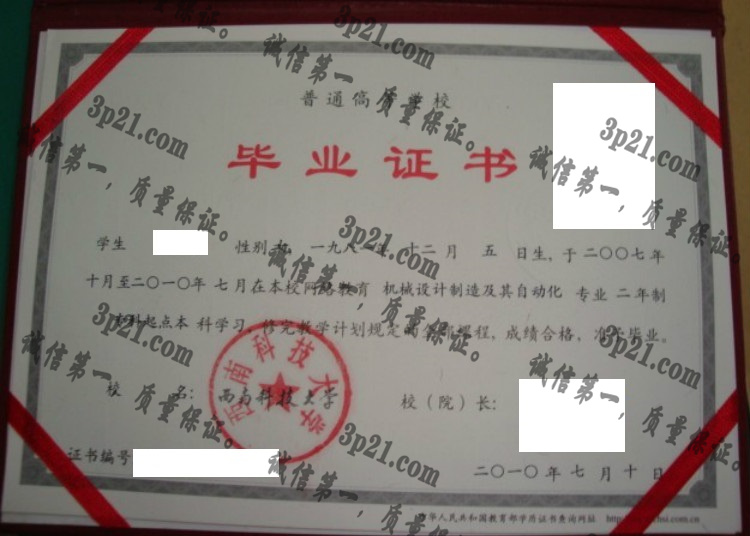 普通高等学校
毕业证书
学生 性别 一九八一年 十二月 五 日生，于二〇〇七年
十月至二〇一〇年 七月在本校网络教育 机械设计制造及其自动化 专业 二年制
专科起点本 科学习，修完教学计划规定的全部课程，成绩合格，准予毕业。
校 名： 西南科技大学
校（院）长：
西南科技大学
证书编号
二〇一〇年 七月 十日
中华人民共和国教育部学历证书查询网站
3p21.com
诚信第一，质量保证。
3p21.com
诚信第一，质量保证。
3p21.com
诚信第一，质量保证。
3p21.com
诚信第一，质量保证。
3p21.com
诚信第一，质量保证。
3p21.com
诚信第一，质量保证。
3p21.com
诚信第一，质量保证。